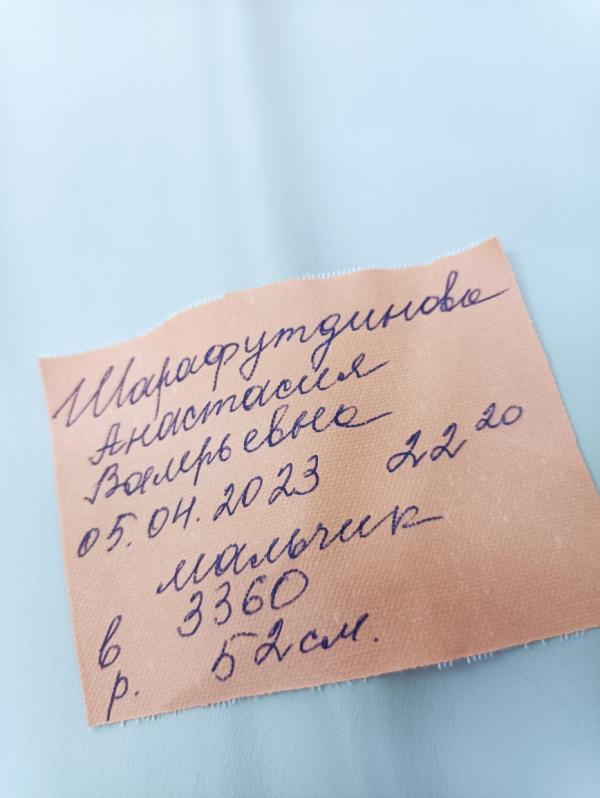 Шарафутдинова
Анастасия
Валерьевна
05.04.2023 22 20
мальчик
в 3360
р. 52 см.